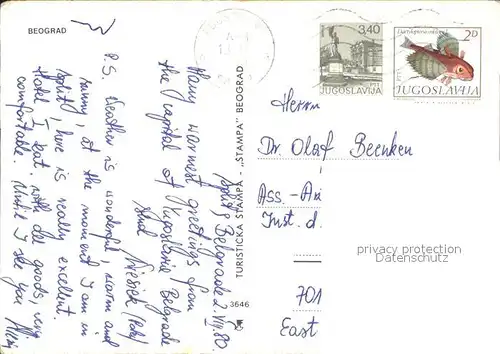 BEOGRAD
3,40
JUGOSLAVIJA
2D
JUGOSLAVIJA
Split, Belgrade 2.VII.80.
Many warmest greetings from
the capital of Yugoslavia Belgrade
and
P.S. Weather is wonderful, warm and
sunny, at the moment I am in
Split, here is really excellent.
Hotel, I eat, with all goods, very
comfortable. Until I see you,
TURISTIČKA ŠTAMPA - „ŠTAMPA" BEOGRAD
3646
Herrn
Dr Olaf Beenken
Ass-
Inst. d.
701
East
privacy protection
Datenschutz